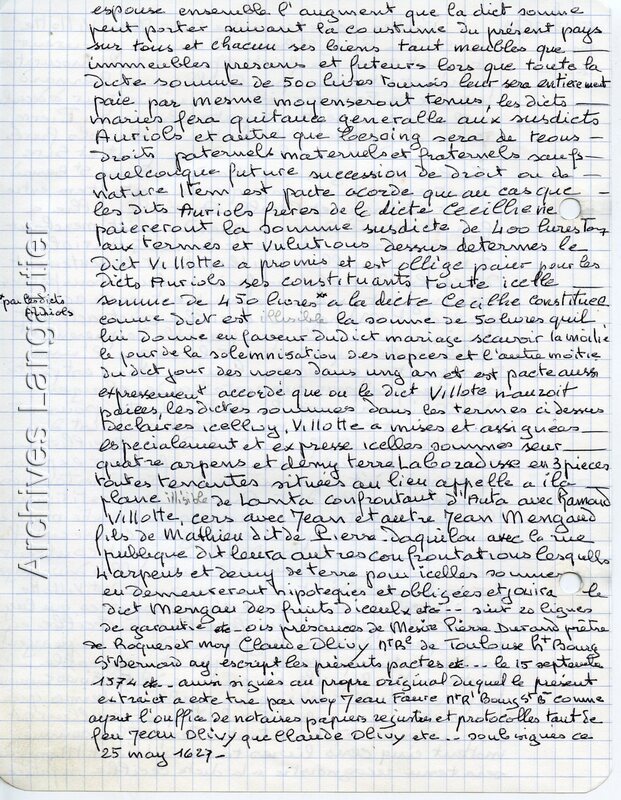 espouse ensemble l'augment que la dict somme
peut porter suivant la coustume du présent pays
sur tous et chacun ses biens tant meubles que
immmeubles presans et futeurs lors que toute la
dicte somme de 500 livres tournois leur sera entierement
paie par mesme moyen seront tenus, les dicts
maries fera quitance generalle aux susdicts
Auriols et autre que besoing sera de tous
droits paternels maternels et fraternels saufs
quelconque future succession de droit ou de
nature Item est pacte acorde que au cas que
les dits Auriols frères de la dicte Cecilhe ne
paieront la somme susdicte de 400 livres
aux termes et dessus determes le
dict Villotte a promis et est oblige paier pour les
dicts Auriols ses constituants toute icelle
somme de 450 livres * a la dicte Cecilhe
*par les dicts Auriols
comme dict est illisible la somme de 50 livres quil
lui donne en faveur du dict mariage scavoir la moitie
le jour de la solemnisation des nopces et l'autre moitie
du dict jour des noces dans ung an et est pacte aussi
expressement accordé que ou le dict Villote n'auroit
paiees, les dictes sommes dans les termes ci dessus
declaires icelluy, Villotte a mises et assignées
especialement et expresse icelles sommes seur
quatre arpens et demy terre Laboradisse en 3 pieces
toutes tenantes situées au lieu appelle a la
plane illisible de Lanta confrontant d'Auta avec Ramond
Villotte, cers avec Jean et autre Jean Mengaud
fils de Mathieu dit de Pierre Daquilou avec la rue
publique dit leurs autres confrontations lesquells
4 arpens et demy de terre pour icelles sommes
en demeureront ipotegies et obligées et jouira le
dict Mengau des fruits d'iceulx etc -- 20 lignes
de garantie etc - presances de Mesire Pierre Durand prêtre
de Roques et moy Claude Olivy nre Re de Toulouse Bourg
St Bernard ay escript les présents pactes etc... le 15 septembre
1574 etc - ausi signés au propre original duquel le présent
extraict a este tire par moy Jean Faure nre Rl Bourg St Bd comme
ayant l'ouffice de notaires papiers registres et protocolles tant de
feu Jean Olivy que Claude Olivy etc -- soubsignes ce
25 may 1627 -
Archives Langautier